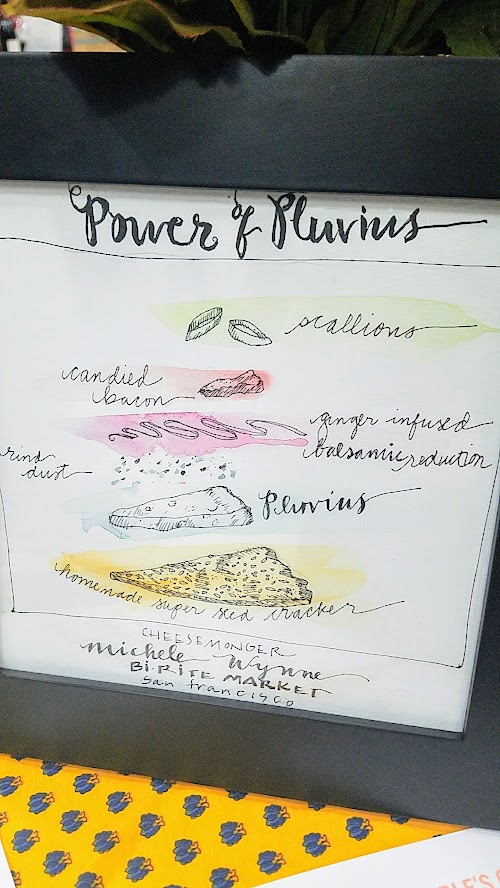 Power of Pluvius
scallions
candied
bacon
ginger infused
balsamic reduction
rind
dust
Pluvius
homemade super seed cracker
CHEESEMONGER
Michele Wynne
BiRiTE MARKET
San francisco